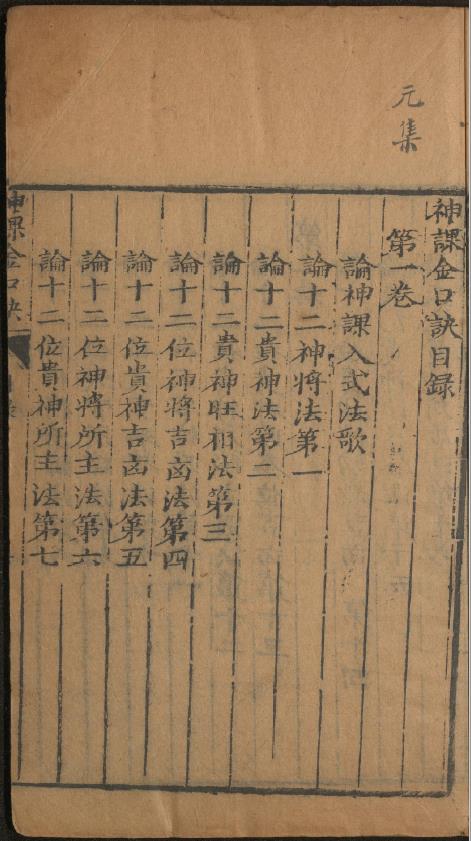 元集
神課金口訣目録
第一巻
論神課入式法歌
論十二神將法第一
論十二貴神法第二
論十二貴神旺相法第三
論十二位神將吉凶法第四
論十二位貴神吉凶法第五
論十二位神將所主法第六
論十二位貴神所主法第七
神課金口訣